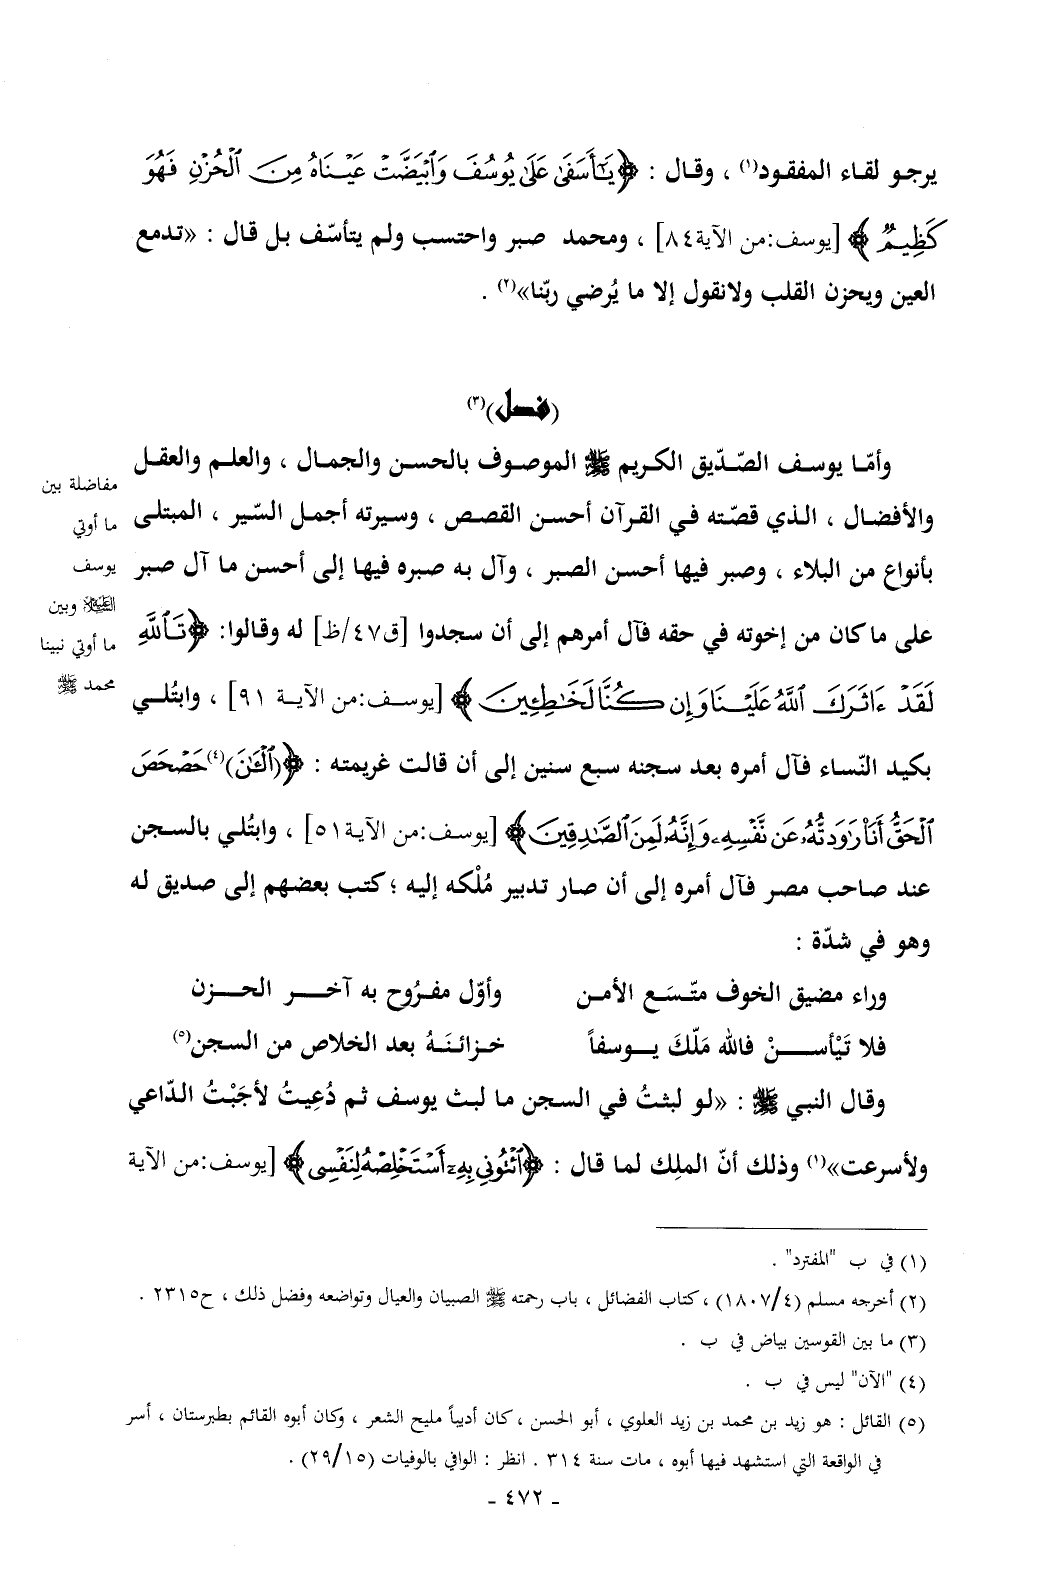 يرجو لقاء المفقود(١) ، وقال : ﴿يَٰٓأَسَفَىٰ عَلَىٰ يُوسُفَ وَٱبْيَضَّتْ عَيْنَاهُ مِنَ ٱلْحُزْنِ فَهُوَ
كَظِيمٌ﴾ [يوسف:من الآية٨٤] ، ومحمد صبر واحتسب ولم يتأسّف بل قال : «تدمع
العين ويحزن القلب ولانقول إلا ما يُرضي ربّنا»(٢) .
(فصل)(٣)
وأمّا يوسف الصّدّيق الكريم ﷺ الموصوف بالحسن والجمال ، والعلم والعقل
والأفضال ، الذي قصّته في القرآن أحسن القصص ، وسيرته أجمل السّير ، المبتلى
بأنواع من البلاء ، وصبر فيها أحسن الصبر ، وآل به صبره فيها إلى أحسن ما آل صبر
على ما كان من إخوته في حقه فآل أمرهم إلى أن سجدوا [ق٤٧/ظ] له وقالوا: ﴿تَٱللَّهِ
لَقَدْ ءَاثَرَكَ ٱللَّهُ عَلَيْنَا وَإِن كُنَّا لَخَٰطِـِٔينَ﴾ [يوسف:من الآية ٩١] ، وابتُلي
بكيد النّساء فآل أمره بعد سجنه سبع سنين إلى أن قالت غريمته : ﴿(ٱلْـَٰٔنَ)(٤) حَصْحَصَ
ٱلْحَقُّ أَنَا۠ رَٰوَدتُّهُۥ عَن نَّفْسِهِۦ وَإِنَّهُۥ لَمِنَ ٱلصَّٰدِقِينَ﴾ [يوسف:من الآية٥١] ، وابتُلي بالسجن
عند صاحب مصر فآل أمره إلى أن صار تدبير مُلْكه إليه ؛ كتب بعضهم إلى صديق له
وهو في شدّة :
وراء مضيق الخوف متّسَع الأمن وأوّل مفرُوح به آخر الحزن
فلا تَيْأسنْ فالله مَلّكَ يوسفاً خزائنَهُ بعد الخلاص من السجن(٥)
وقال النبي ﷺ : «لو لبثتُ في السجن ما لبث يوسف ثم دُعِيتُ لأجَبْتُ الدّاعي
ولأسرعت»(١) وذلك أنّ الملِك لما قال : ﴿ٱئْتُونِي بِهِۦٓ أَسْتَخْلِصْهُ لِنَفْسِى﴾ [يوسف:من الآية
مفاضلة بين
ما أوتي
يوسف
التَلِيْلا وبين
ما أوتي نبينا
محمد ﷺ
(١) في ب "المفترد" .
(٢) أخرجه مسلم (١٨٠٧/٤) ، كتاب الفضائل ، باب رحمته ﷺ الصبيان والعيال وتواضعه وفضل ذلك ، ح٢٣١٥ .
(٣) ما بين القوسين بياض في ب .
(٤) "الآن" ليس في ب .
(٥) القائل : هو زيد بن محمد بن زيد العلوي ، أبو الحسن ، كان أديباً مليح الشعر ، وكان أبوه القائم بطبرستان ، أسر
في الواقعة التي استشهد فيها أبوه ، مات سنة ٣١٤ . انظر : الوافي بالوفيات (٢٩/١٥) .
- ٤٧٢ -